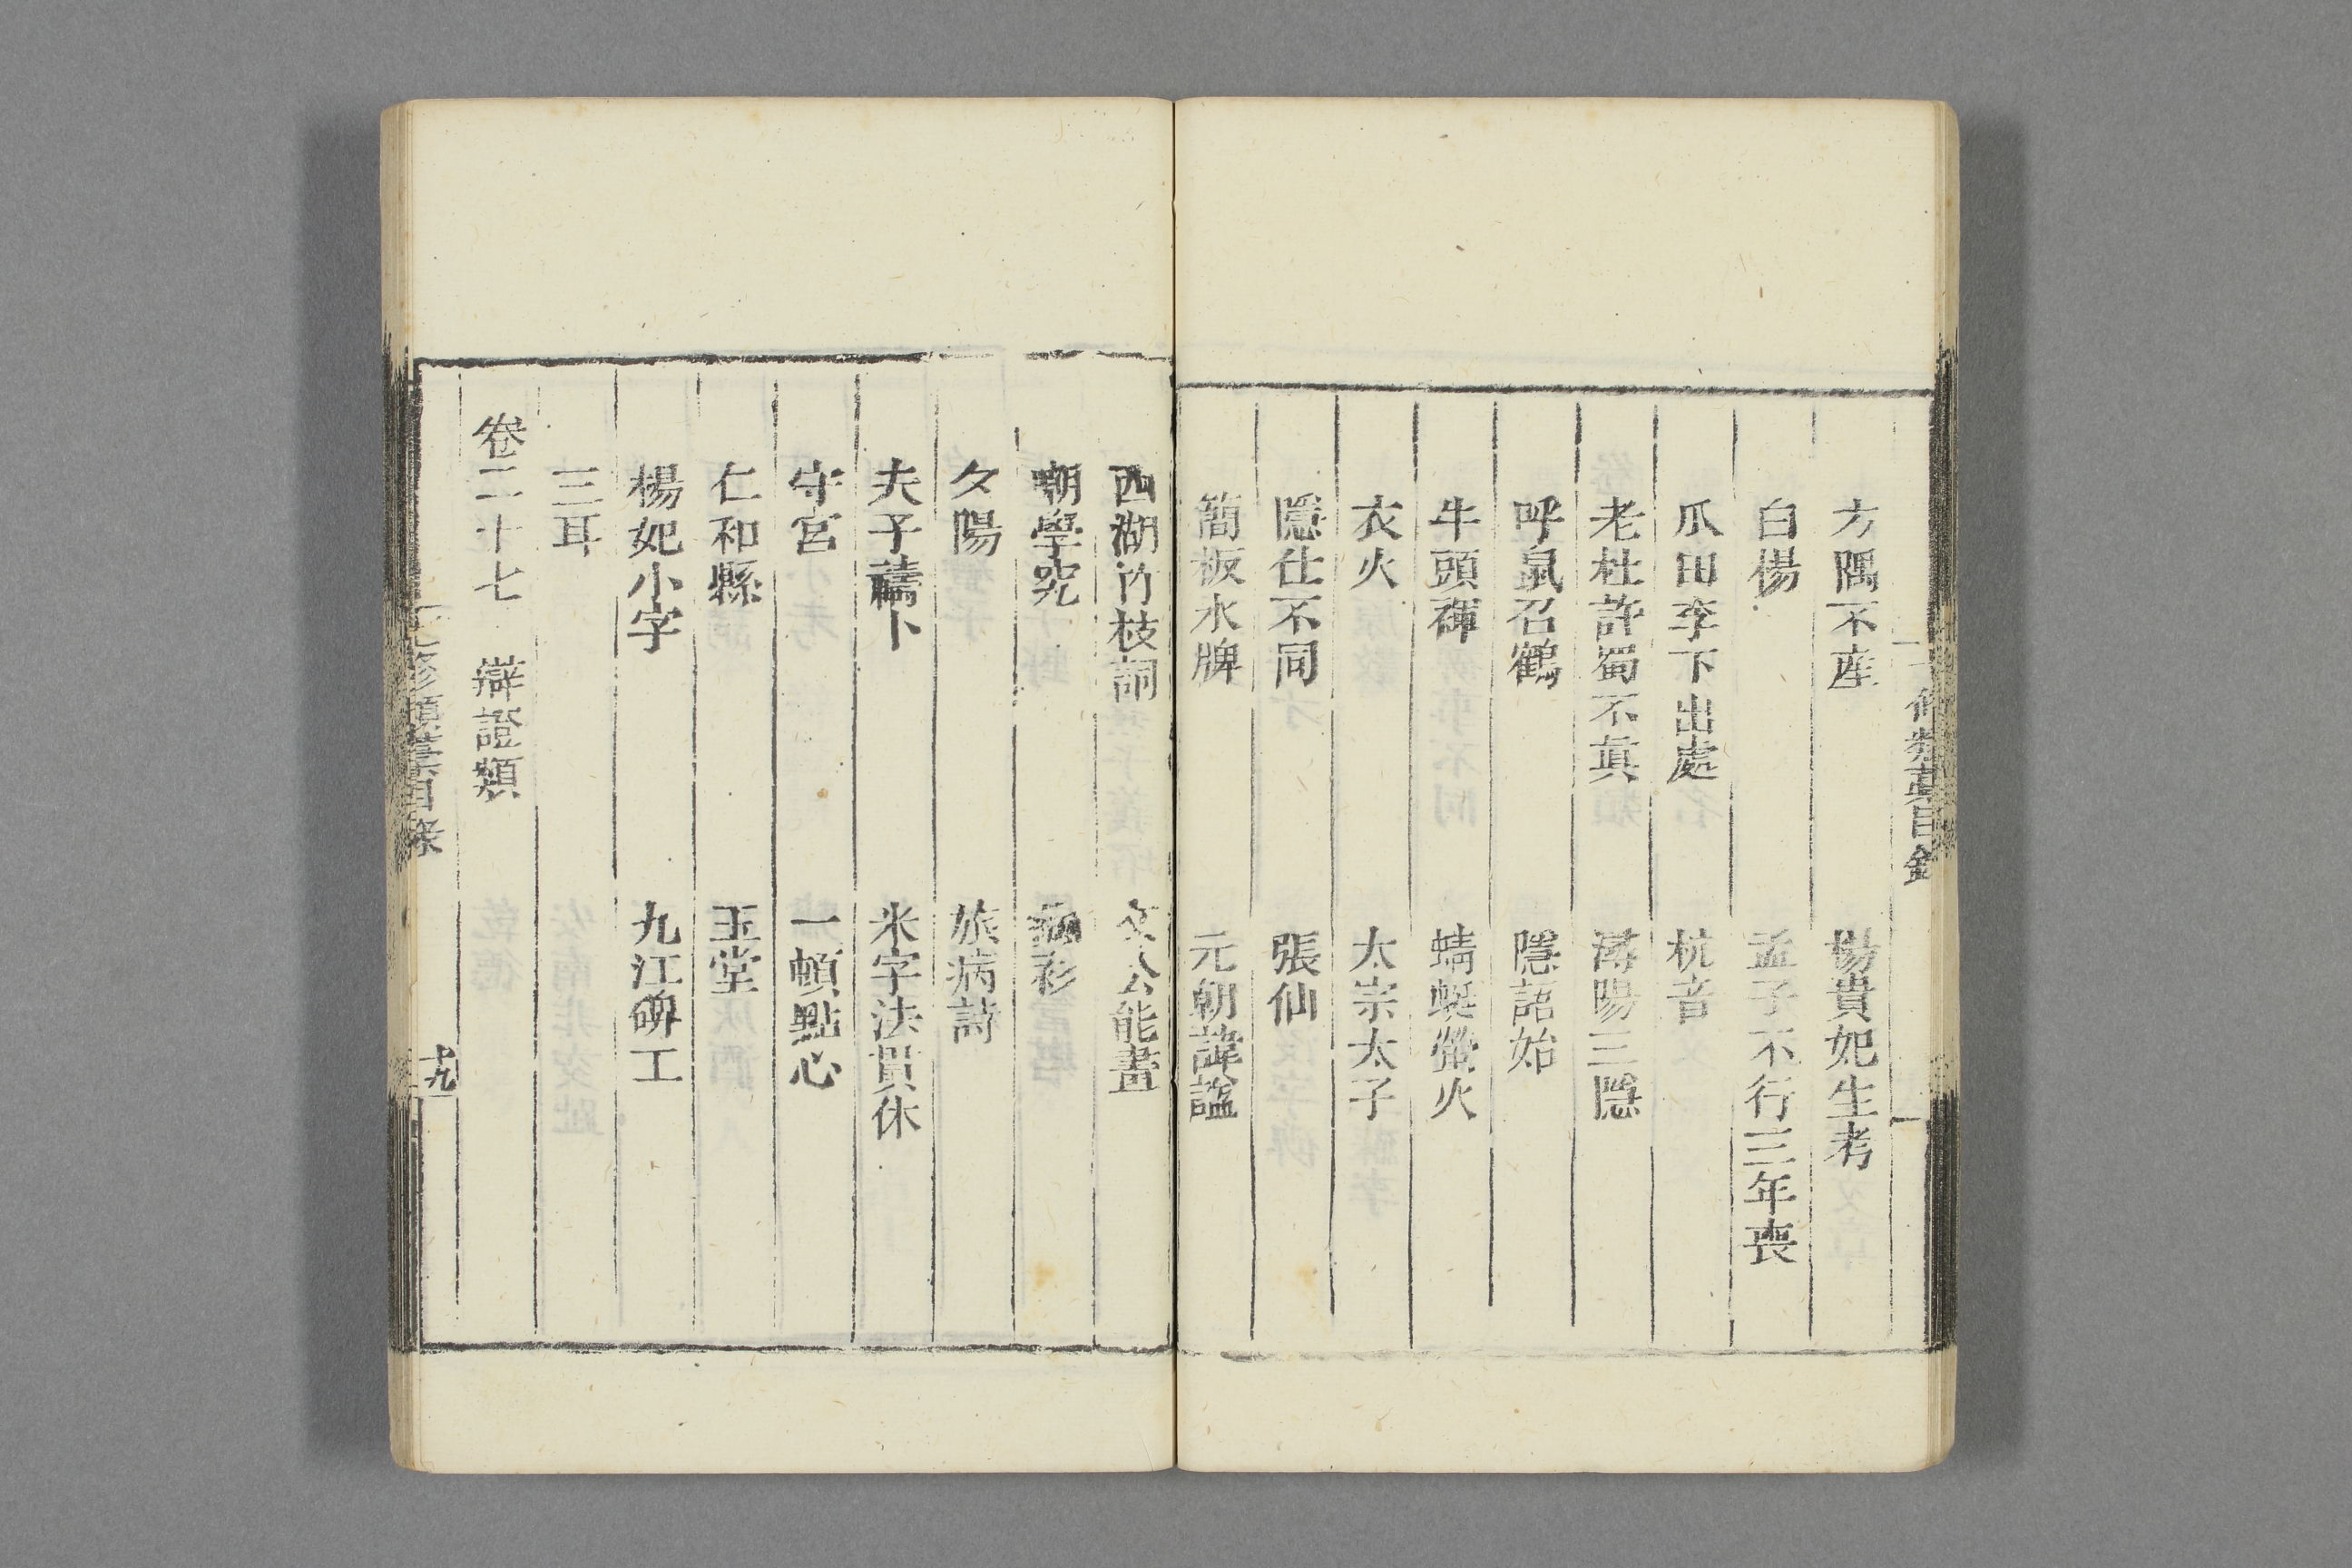 方隅不産　楊貴妃生考
白楊　孟子不行三年喪
瓜田李下出處　杭音
老杜許蜀不眞　潯陽三隱
呼鼠召鶴　隱語始
牛頭褌　蜻蜓螢火
衣火　太宗太子
隱仕不同　張仙
簡板水牌　元朝諱謚
西湖竹枝詞　文公能畫
嘲學究　衫
夕陽　旅病詩
夫子禱卜　米字法貫休
守宮　一頓點心
仁和縣　玉堂
楊妃小字　九江碑工
三耳
卷二十七　辯證類
修類藁目錄
十九